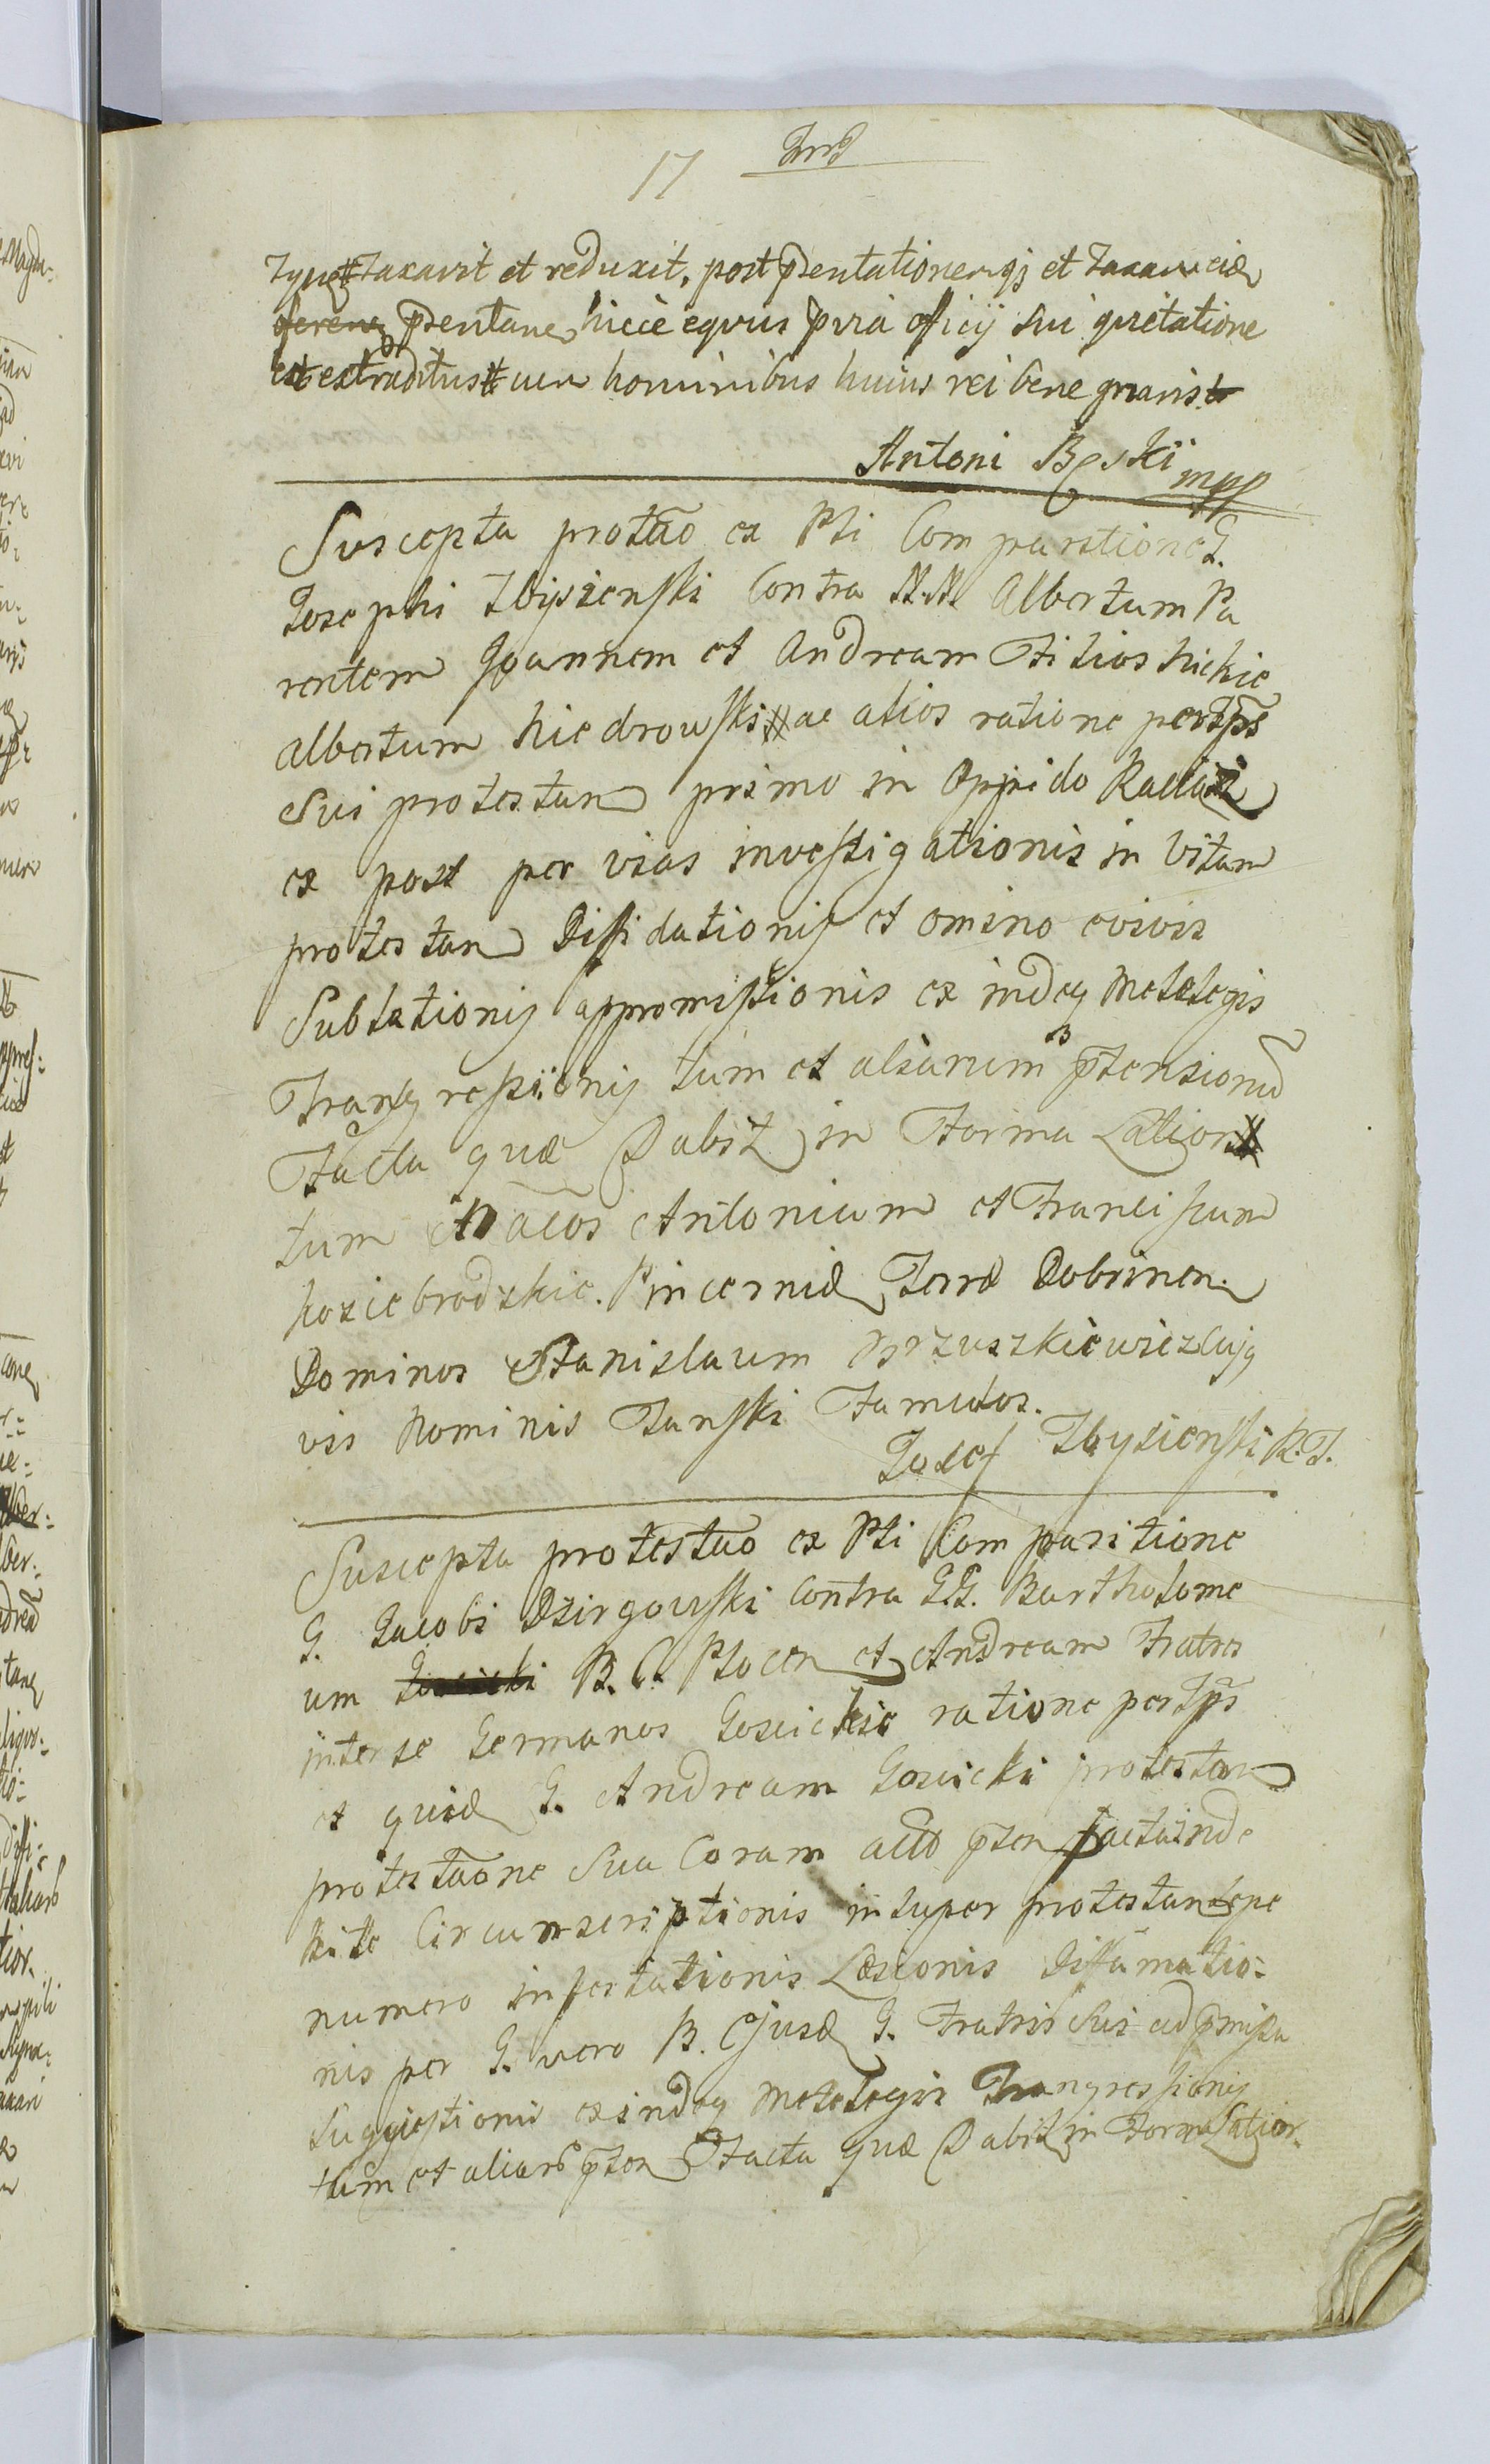 17
Tynf taxavit et reduxit, post pñtationemqȝ et taxam eid
pñtane hicce equus pvia officij sui quietatione
est extraditus cum hominibus huius rei bene gnaris
Antoni Bęski mpp
Suscepta prottao ex Pti Comparitione G.
Josephi Zbijszenski Contra N.N. Albertum Pa
rentem Joannem et Andream Filios
Albertum Niedrowski ac alios ratione pertps
Sui protestan primo in Oppido Raciąż
ex post per vias investigationis in Vitam
protestan Diffidationis et omino evivis
Sublationis appromissionis ex indeq Metelegis
Transgressionis tum et aliarum ptensionu
Facta quæ Dabit in Forma Lation
tum Macos Antonium et Franciscum
koziebrodzkie. Pincernid Terræ Dobrinen.
Dominos Stanislaum Brzuszkiewicz Cujq
vis Nominis Tanski Famulos.
Josef Zbysienski R.T.
Suscepta protestao ex Pti Comparitione
G. Jacobi Dzirgowski Contra G.G. Bartholome
um B. C. Plocen et Andream Fratres
inter se Germanos Goscickie ratione pertps
et quid G. Andream Goscicki protestan
protestaone Sua Coram actis pten facta inde
bite Circumscriptionis insuper protestan
numero infestationis Læsionis Diffamatio:
nis per G. vero B. Ejusd G. Fratris Sui ad pmissa
Suggiestionis exindeq Metelegis Trangressionis
tum et aliaru pten Facta quæ Dabit in Forma Latior.